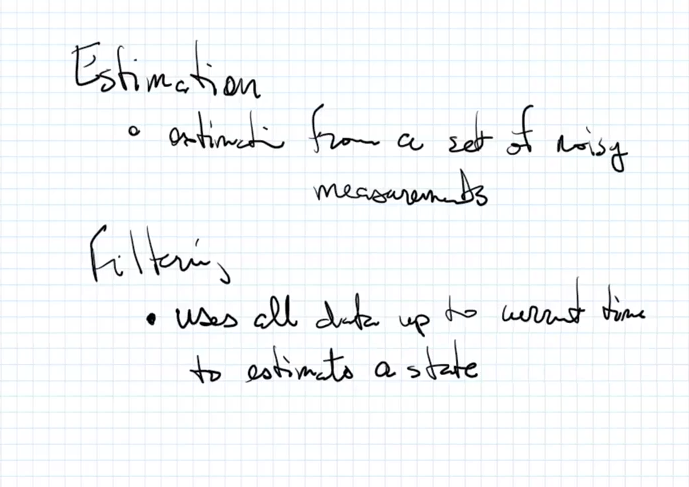 Estimation
• estimati from a set of noisy
measurements
Filtering
• uses all data up to current time
to estimate a state